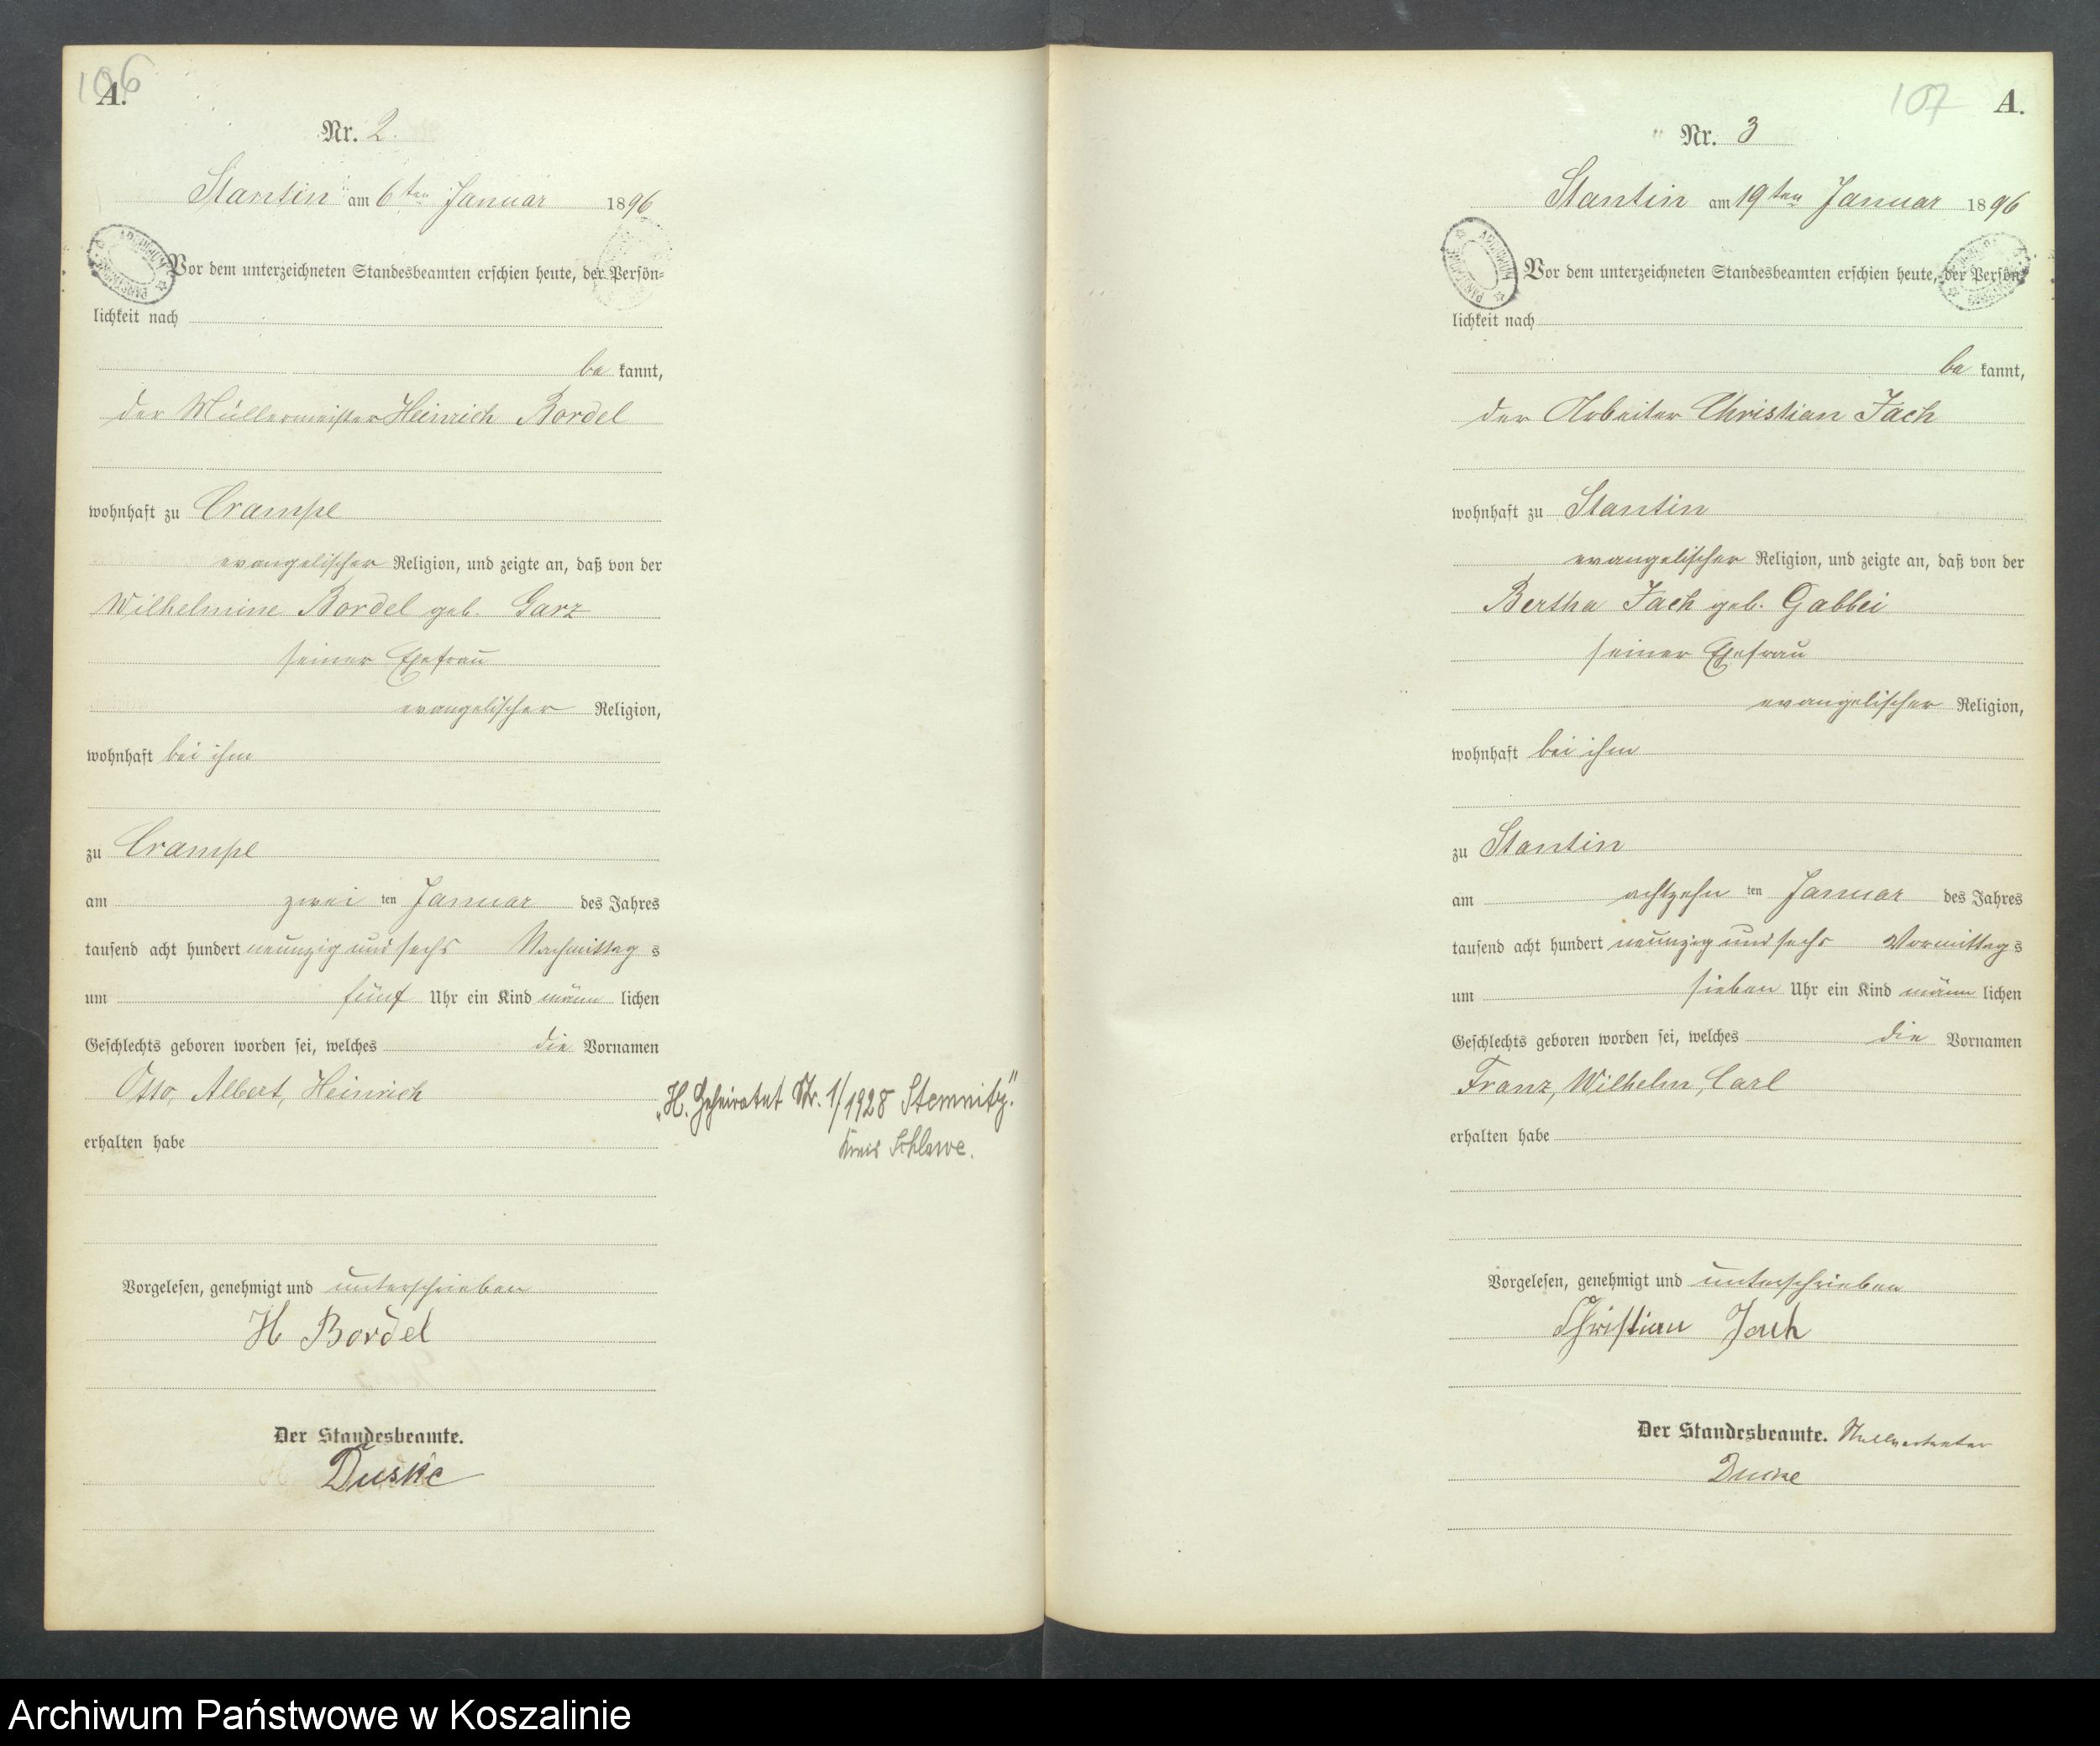 106
A.
Nr. 2.
Stantin am 6ten Januar 1896
Vor dem unterzeichneten Standesbeamten erschien heute, der Persön-
lichkeit nach
be kannt,
der Müllermeister Heinrich Bordel
wohnhaft zu Crampe
evangelischer Religion, und zeigte an, daß von der
Wilhelmine Bordel geb. Garz
seiner Ehefrau
evangelischer Religion,
wohnhaft bei ihm
zu Crampe
am zwei ten Januar des Jahres
tausend acht hundert neunzig und sechs Nachmittag s
um fünf Uhr ein Kind männ lichen
Geschlechts geboren worden sei, welches die Vornamen
Otto, Albert, Heinrich
erhalten habe
„H. Geheiratet Nr. 1/1928 Stemnitz."
Kreis Schlawe.
Vorgelesen, genehmigt und unterschrieben
H Bordel
Der Standesbeamte.
Duske
107
A.
Nr. 3
Stantin am 19ten Januar 1896
Vor dem unterzeichneten Standesbeamten erschien heute, der Persön-
lichkeit nach
be kannt,
der Arbeiter Christian Jach
wohnhaft zu Stantin
evangelischer Religion, und zeigte an, daß von der
Bertha Jach geb. Gabbei
seiner Ehefrau
evangelischer Religion,
wohnhaft bei ihm
zu Stantin
am achtzehn ten Januar des Jahres
tausend acht hundert neunzig und sechs Vormittag s
um sieben Uhr ein Kind männ lichen
Geschlechts geboren worden sei, welches die Vornamen
Franz, Wilhelm, Carl
erhalten habe
Vorgelesen, genehmigt und unterschrieben
Christian Jach
Der Standesbeamte. Stellvertreter
Duske
Archiwum Państwowe w Koszalinie